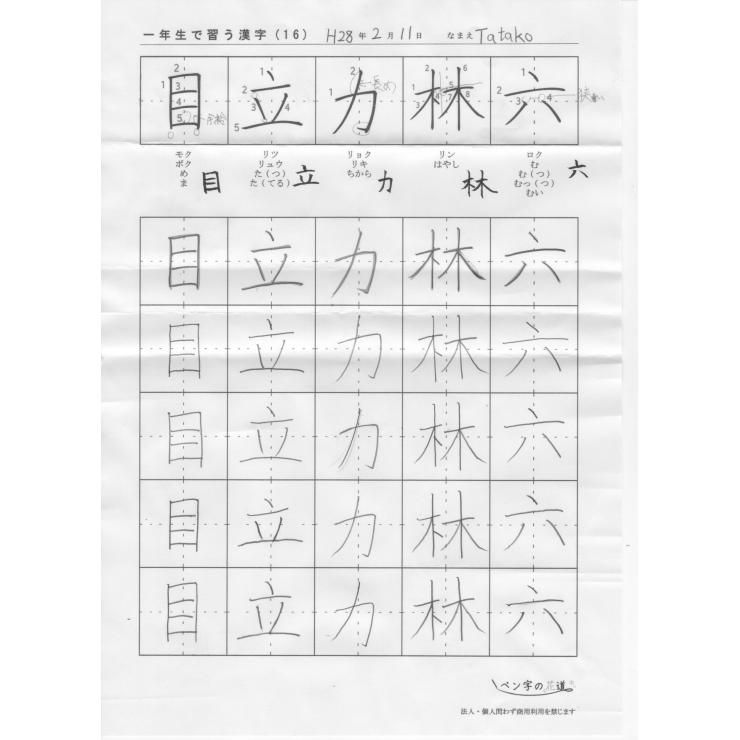 一年生で習う漢字(16) H28年2月11日 なまえ Tatako
目 立 力 林 六
モク リツ リョク リン ロク
ボク リュウ リキ はやし む
め た(つ) ちから む(つ)
ま た(てる) むっ(つ)
むい
目 立 力 林 六
目 立 力 林 六
目 立 力 林 六
目 立 力 林 六
目 立 力 林 六
目 立 力 林 六
ペン字の花道
法人・個人問わず商用利用を禁じます